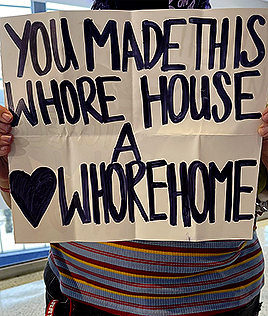 YOU MADE THIS
WHORE HOUSE
A
♥ WHOREHOME